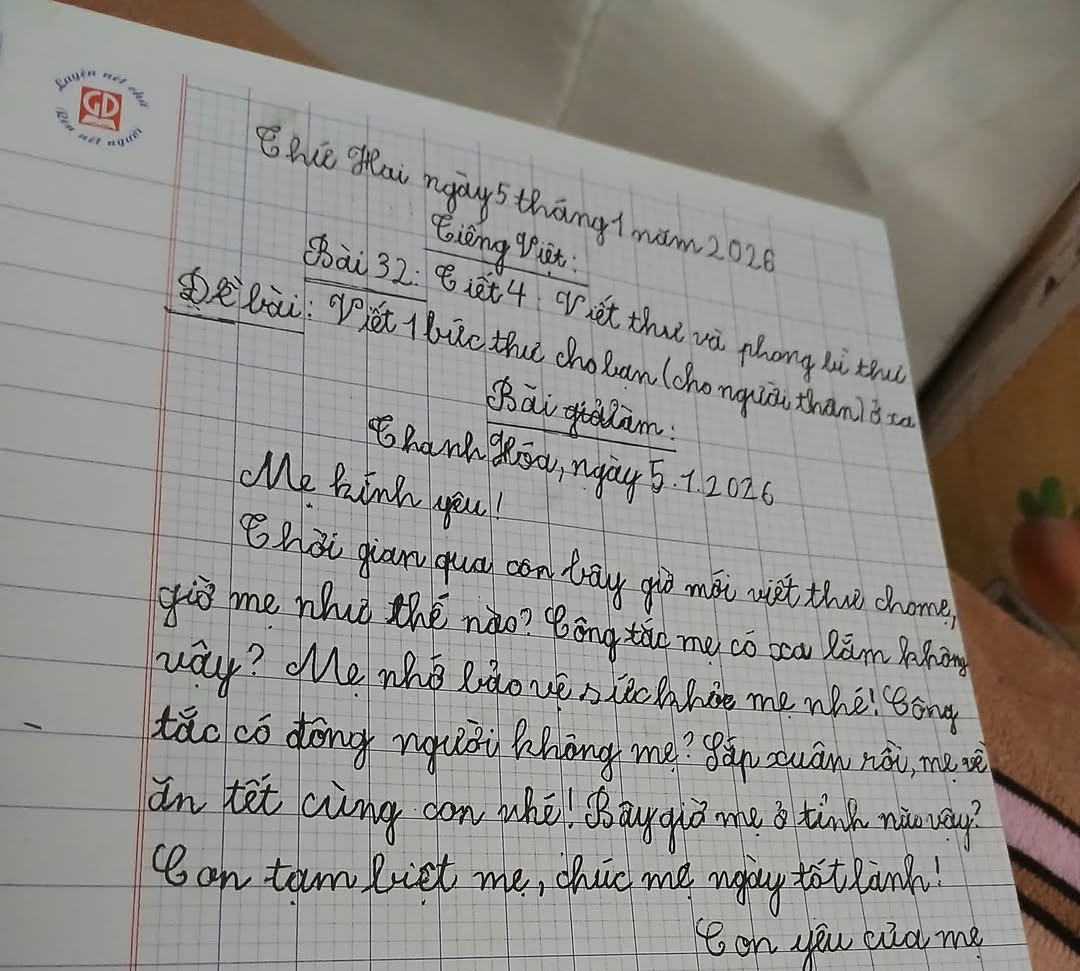 Luyện nét chữ
GD
Rèn nét người
Thứ Hai ngày 5 tháng 1 năm 2026
Tiếng Việt:
Bài 32: Tiết 4: Viết thư và phong bì thư
Đề bài: Viết 1 bức thư cho bạn (cho người thân) ở xa
Bài làm:
Thanh Hóa, ngày 5.1.2026
Mẹ kính yêu!
Thời gian qua con bây giờ mới viết thư cho mẹ,
giờ mẹ như thế nào? Công tác mẹ có xa lắm không
vậy? Mẹ nhớ bảo vệ sức khỏe mẹ nhé! Công
tác có đông người không mẹ? Sắp xuân rồi, mẹ về
ăn tết cùng con nhé! Bây giờ mẹ ở tỉnh nào vậy?
Con tạm biệt mẹ, chúc mẹ ngày tốt lành!
Con yêu của mẹ